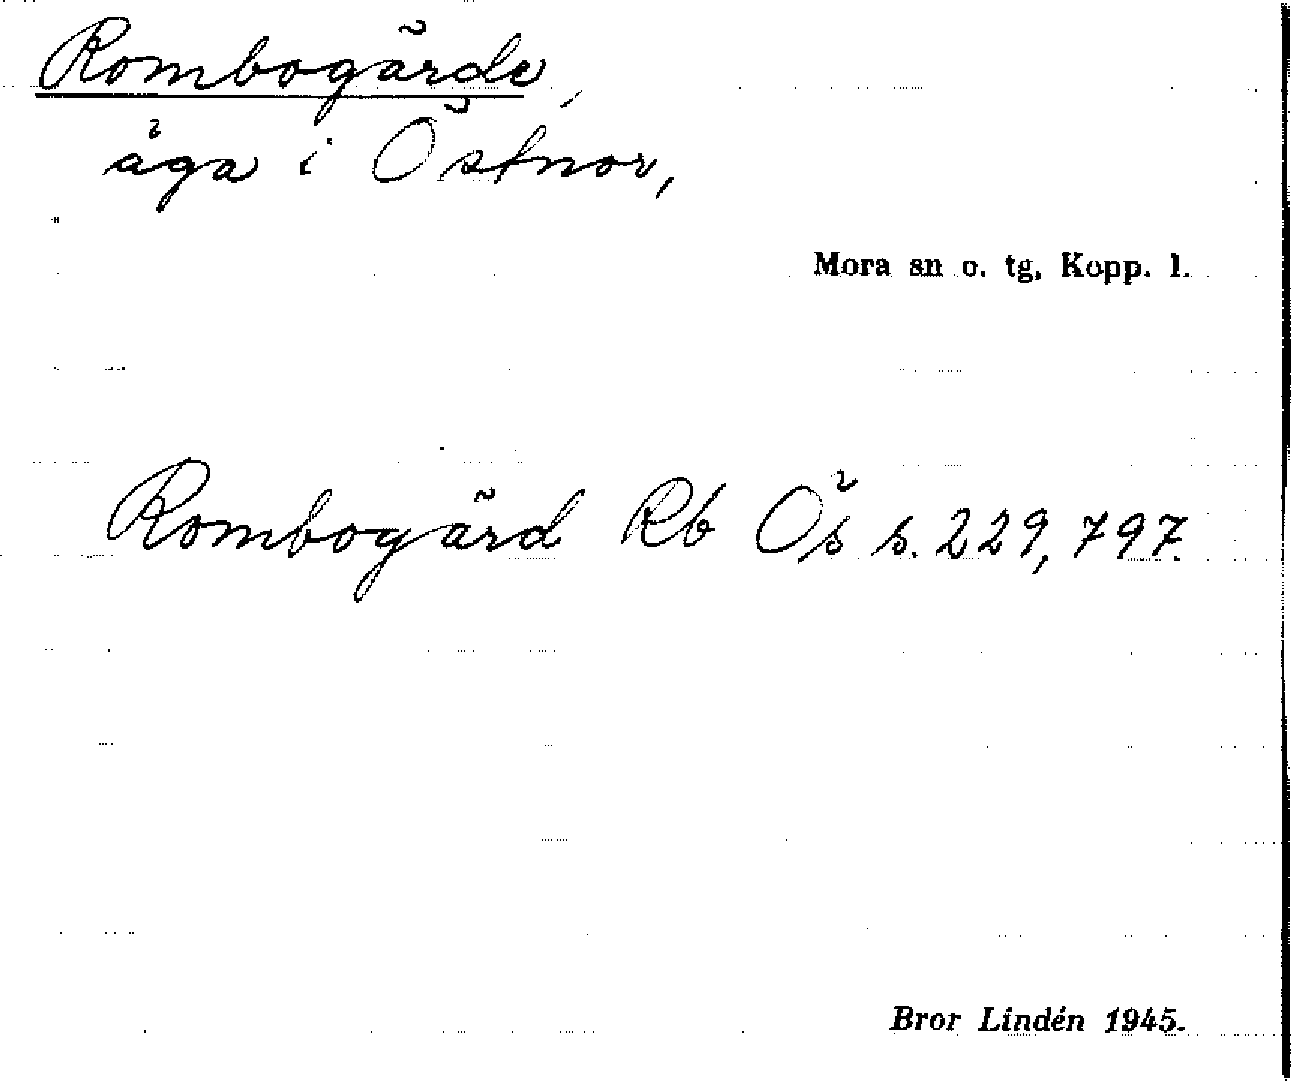 Rombogärde,
äga i Östnor,
Mora sn o. tg, Kopp. l.
Rombogärd Rb Ös s. 229, 797.
Bror Lindén 1945.